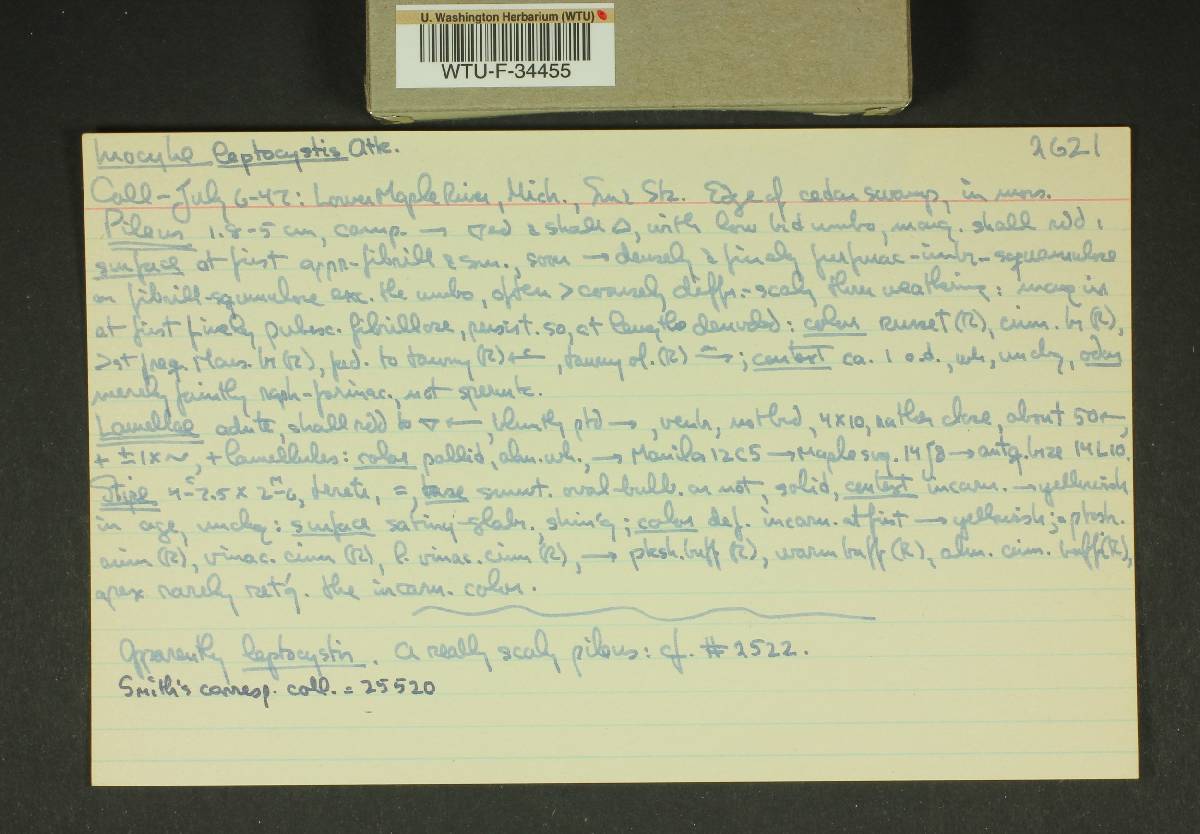 U. Washington Herbarium (WTU)
WTU-F-34455
Inocybe leptocystis Atk.
2621
Coll-July 6-47: Lower Maple River, Mich., Smz Stz. Edge of cedar swamp, in moss.
Pileus 1.8-5 cm, camp. → & shall, with low bd umbo, marg. shall rdd
surface at first appr-fibrill & sm., soon → densely & finely furfurac-imbr-squamulose
or fibrill-squamulose exc. the umbo, often > coarsely diffr.-scaly thru weathering: marg in
at first finely pubesc. fibrillose, persist. so, at length denuded: color russet (R), cinn. br (R),
> at freq. Mars. br (R), fad. to tawny (R) ←, tawny ol. (R); context ca. 1 o.d., wh, unchg, odor
merely faintly raph-farinac., not spermtc.
Lamellae adnte, shall rdd to ←, bluntly ptd →, ventr, not bd, 4×10, rather close, about 50 ←,
+ ± 1×~, + lamellules: color pallid, alm. wh., → Manila 12C5 → Maple sug. 14 J8 → antq. brze 14L10.
Stipe 4-7.5 × 2-6, terete, =, base somwt. oval-bulb. or not, solid, context incarn. → yellowish
in age, unchg: surface satiny-glabr. shin'g; color def. incarn. at first → yellowish; = pksh.
cinn (R), vinac. cinn (R), l. vinac. cinn (R), → pksh. buff (R), warm buff (R), alm. cinn. buff (R),
apex rarely ret'g. the incarn. color.
Apparently leptocystis. A really scaly pileus: cf. #2522.
Smith's corresp. coll. = 25520